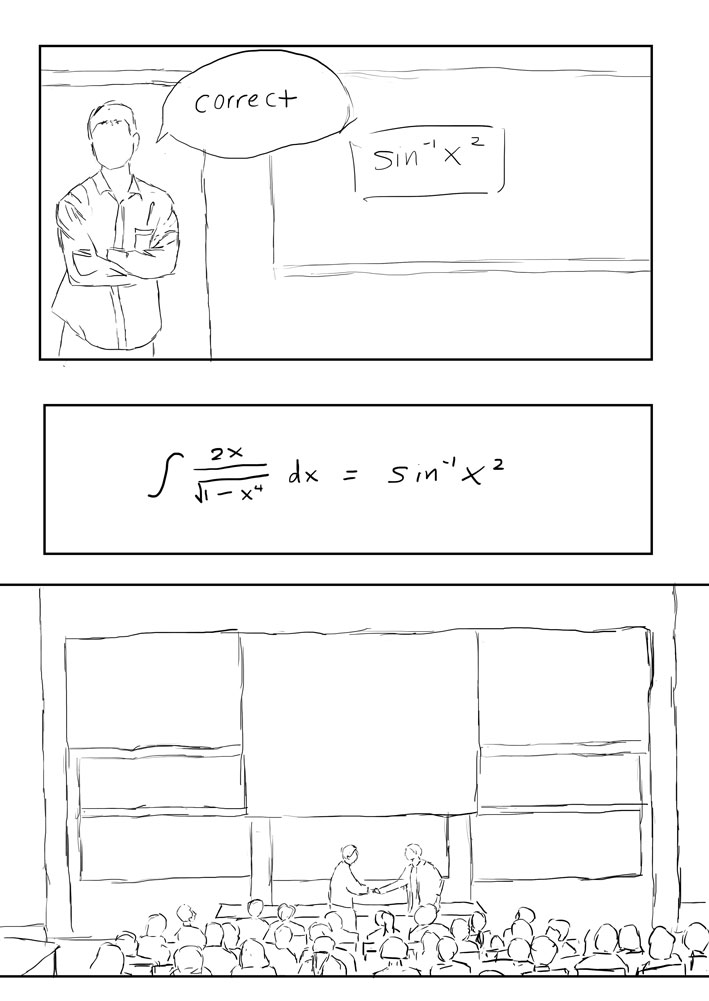 correct
sin⁻¹x²
∫ 2x/√1-x⁴ dx = sin⁻¹x²